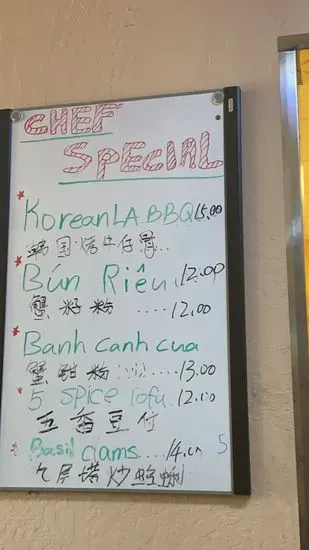 CHEF
SPECIAL
Korean LA BBQ 15.00
韩国烤牛仔骨..
Bún Riêu 12.00
蟹籽粉 ....12.00
Banh canh cua
蟹钳粉 .....13.00
5 spice tofu. 12.00
五香豆付
Basil clams....14.
九层塔炒蛤蜊